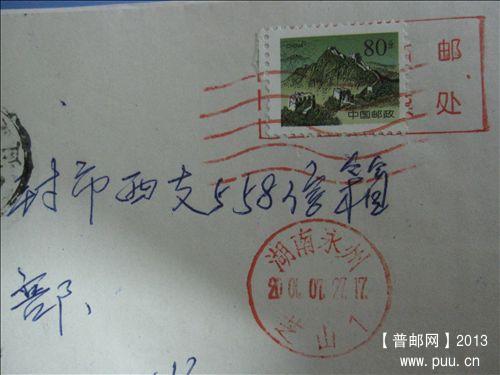 80分
中国邮政
邮
处
封市西支558信箱
部、
湖南永州
2001.07.27.17
山 1
【普邮网】2013
www.puu.cn